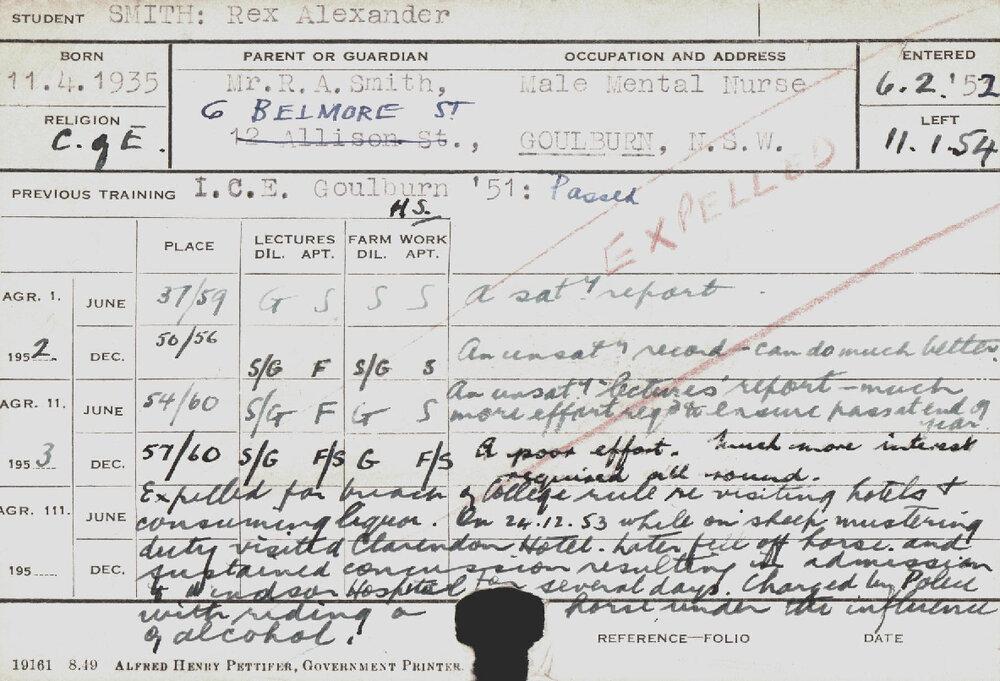 STUDENT SMITH: Rex Alexander
BORN PARENT OR GUARDIAN OCCUPATION AND ADDRESS ENTERED
11.4.1935 Mr. R. A. Smith, Male Mental Nurse 6.2.'52
RELIGION 6 BELMORE ST LEFT
C. of E. 12 Allison St., GOULBURN, N.S.W. 11.1.54
PREVIOUS TRAINING I.C.E. Goulburn '51: Passed
H.S.
EXPELLED
PLACE LECTURES FARM WORK
DIL. APT. DIL. APT.
AGR. 1. JUNE 37/59 G S S S A sat'y report.
1952 DEC. 50/56 S/G F S/G S An unsat'y record - can do much better.
AGR. 11. JUNE 54/60 S/G F G S An unsat'y 'lectures' report - much
more effort req'd to ensure pass at end of
year
1953 DEC. 57/60 S/G F/S G F/S A poor effort. Much more interest
required all round.
Expelled for breach of College rule re visiting hotels &
AGR. 111. JUNE consuming liquor. On 24.12.53 while on sheep mustering
duty visited Clarendon Hotel. Later fell off horse and
195 DEC. sustained concussion resulting in admission
to Windsor Hospital for several days. Charged by Police
with riding a horse under the influence
of alcohol!
REFERENCE—FOLIO DATE
19161 8.49 ALFRED HENRY PETTIFER, GOVERNMENT PRINTER.